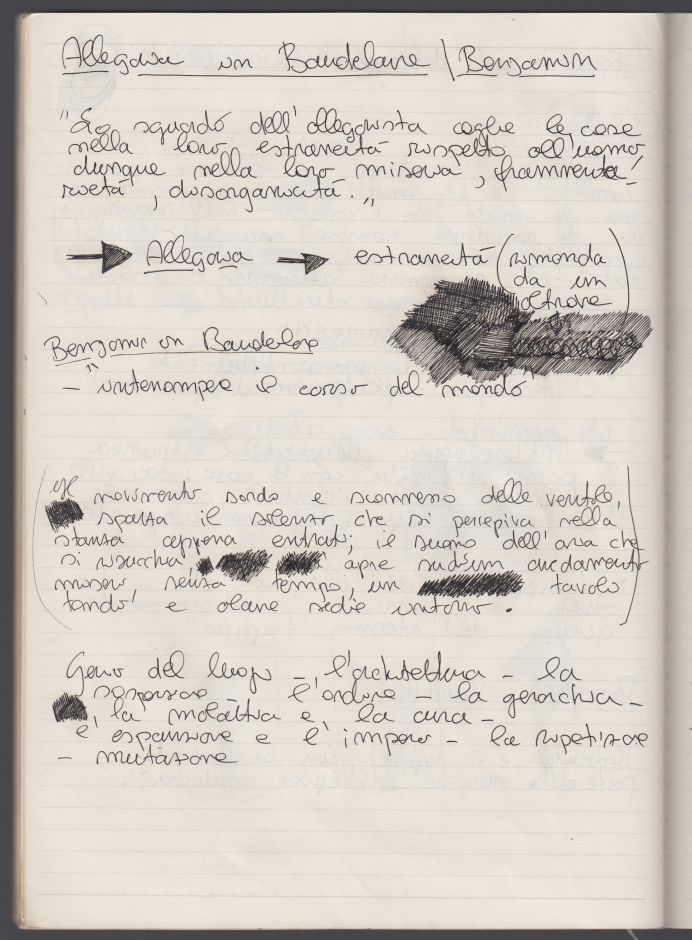 Allegoria in Baudelaire / Benjamin
"Lo sguardo dell'allegorista coglie le cose
nella loro estraneità rispetto all'uomo
dunque nella loro miseria, frammenta-
rietà, disorganicità."
→ Allegoria → estraneità (rimanda
da un
altrove)
Benjamin in Baudelaire
– "interrompere il corso del mondo"
(Il movimento sordo e sconnesso delle ventole,
spazza il silenzio che si percepiva nella
stanza appena entrati; il suono dell'aria che
si risucchia, apre nudi andamenti
senza tempo, un tavolo
tondo e alcune sedie intorno.)
Genio del luogo – l'architettura – la
– l'ordine – la gerarchia –
, la malattia e, la cura –
e espansione e l'impero – la ripetizione
– mutazione